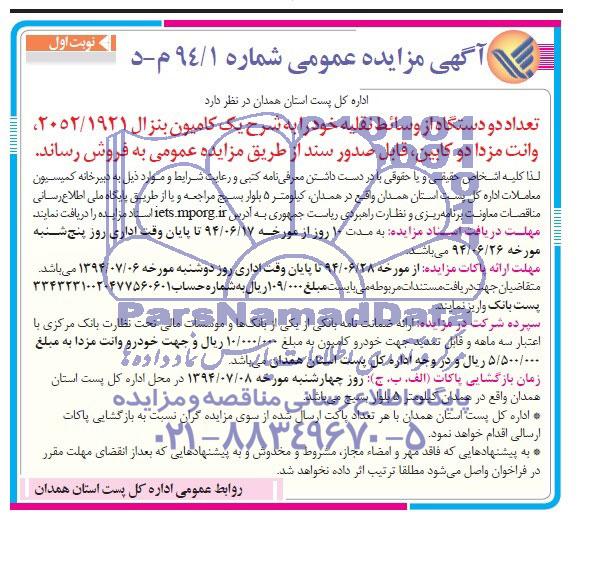 نوبت اول
آگهی مزایده عمومی شماره ۹۴/۱ م-د
اداره کل پست استان همدان در نظر دارد
تعداد دو دستگاه از وسائط نقلیه خود را به شرح یک کامیون بنز ال ۲۰۵۲/۱۹۲۱،
وانت مزدا دو کابین، قابل صدور سند از طریق مزایده عمومی به فروش رساند.
لذا کلیه اشخاص حقیقی و یا حقوقی با در دست داشتن معرفی‌نامه کتبی و رعایت شرایط و موارد ذیل به دبیرخانه کمیسیون
معاملات اداره کل پست استان همدان واقع در همدان، کیلومتر ۵ بلوار بسیج مراجعه و یا از طریق پایگاه ملی اطلاع‌رسانی
مناقصات معاونت برنامه‌ریزی و نظارت راهبردی ریاست جمهوری به آدرس iets.mporg.ir اسناد مزایده را دریافت نمایند.
مهلت دریافت اسناد مزایده: به مدت ۱۰ روز از مورخه ۹۴/۰۶/۱۷ تا پایان وقت اداری روز پنج‌شنبه
مورخه ۹۴/۰۶/۲۶ می‌باشد.
مهلت ارائه پاکات مزایده: از مورخه ۹۴/۰۶/۲۸ تا پایان وقت اداری روز دوشنبه مورخه ۱۳۹۴/۰۷/۰۶ می‌باشد.
متقاضیان جهت دریافت مستندات مربوطه می‌بایست مبلغ ۱۰۹/۰۰۰ ریال به شماره حساب
پست بانک واریز نمایند.
سپرده شرکت در مزایده: ارائه ضمانت نامه بانکی از یکی از بانک‌ها و موسسات مالی تحت نظارت بانک مرکزی با
اعتبار سه ماهه و قابل تمدید جهت خودرو کامیون به مبلغ ۱۰/۰۰۰/۰۰۰ ریال و جهت خودرو وانت مزدا به مبلغ
۵/۵۰۰/۰۰۰ ریال و در وجه اداره کل پست استان همدان می‌باشد.
زمان بازگشایی پاکات (الف، ب، ج): روز چهارشنبه مورخه ۱۳۹۴/۰۷/۰۸ در محل اداره کل پست استان
همدان واقع در همدان کیلومتر ۵ بلوار بسیج می‌باشد.
* اداره کل پست استان همدان با هر تعداد پاکت ارسال شده از سوی مزایده گران نسبت به بازگشایی پاکات
ارسالی اقدام خواهد نمود.
* به پیشنهادهایی که فاقد مهر و امضاء مجاز، مشروط و مخدوش و به پیشنهادهایی که بعد از انقضای مهلت مقرر
در فراخوان واصل می‌شود مطلقا ترتیب اثر داده نخواهد شد.
روابط عمومی اداره کل پست استان همدان
ParsNamadData
۰۲۱-۸۸۳۴۹۶۷۰-۵